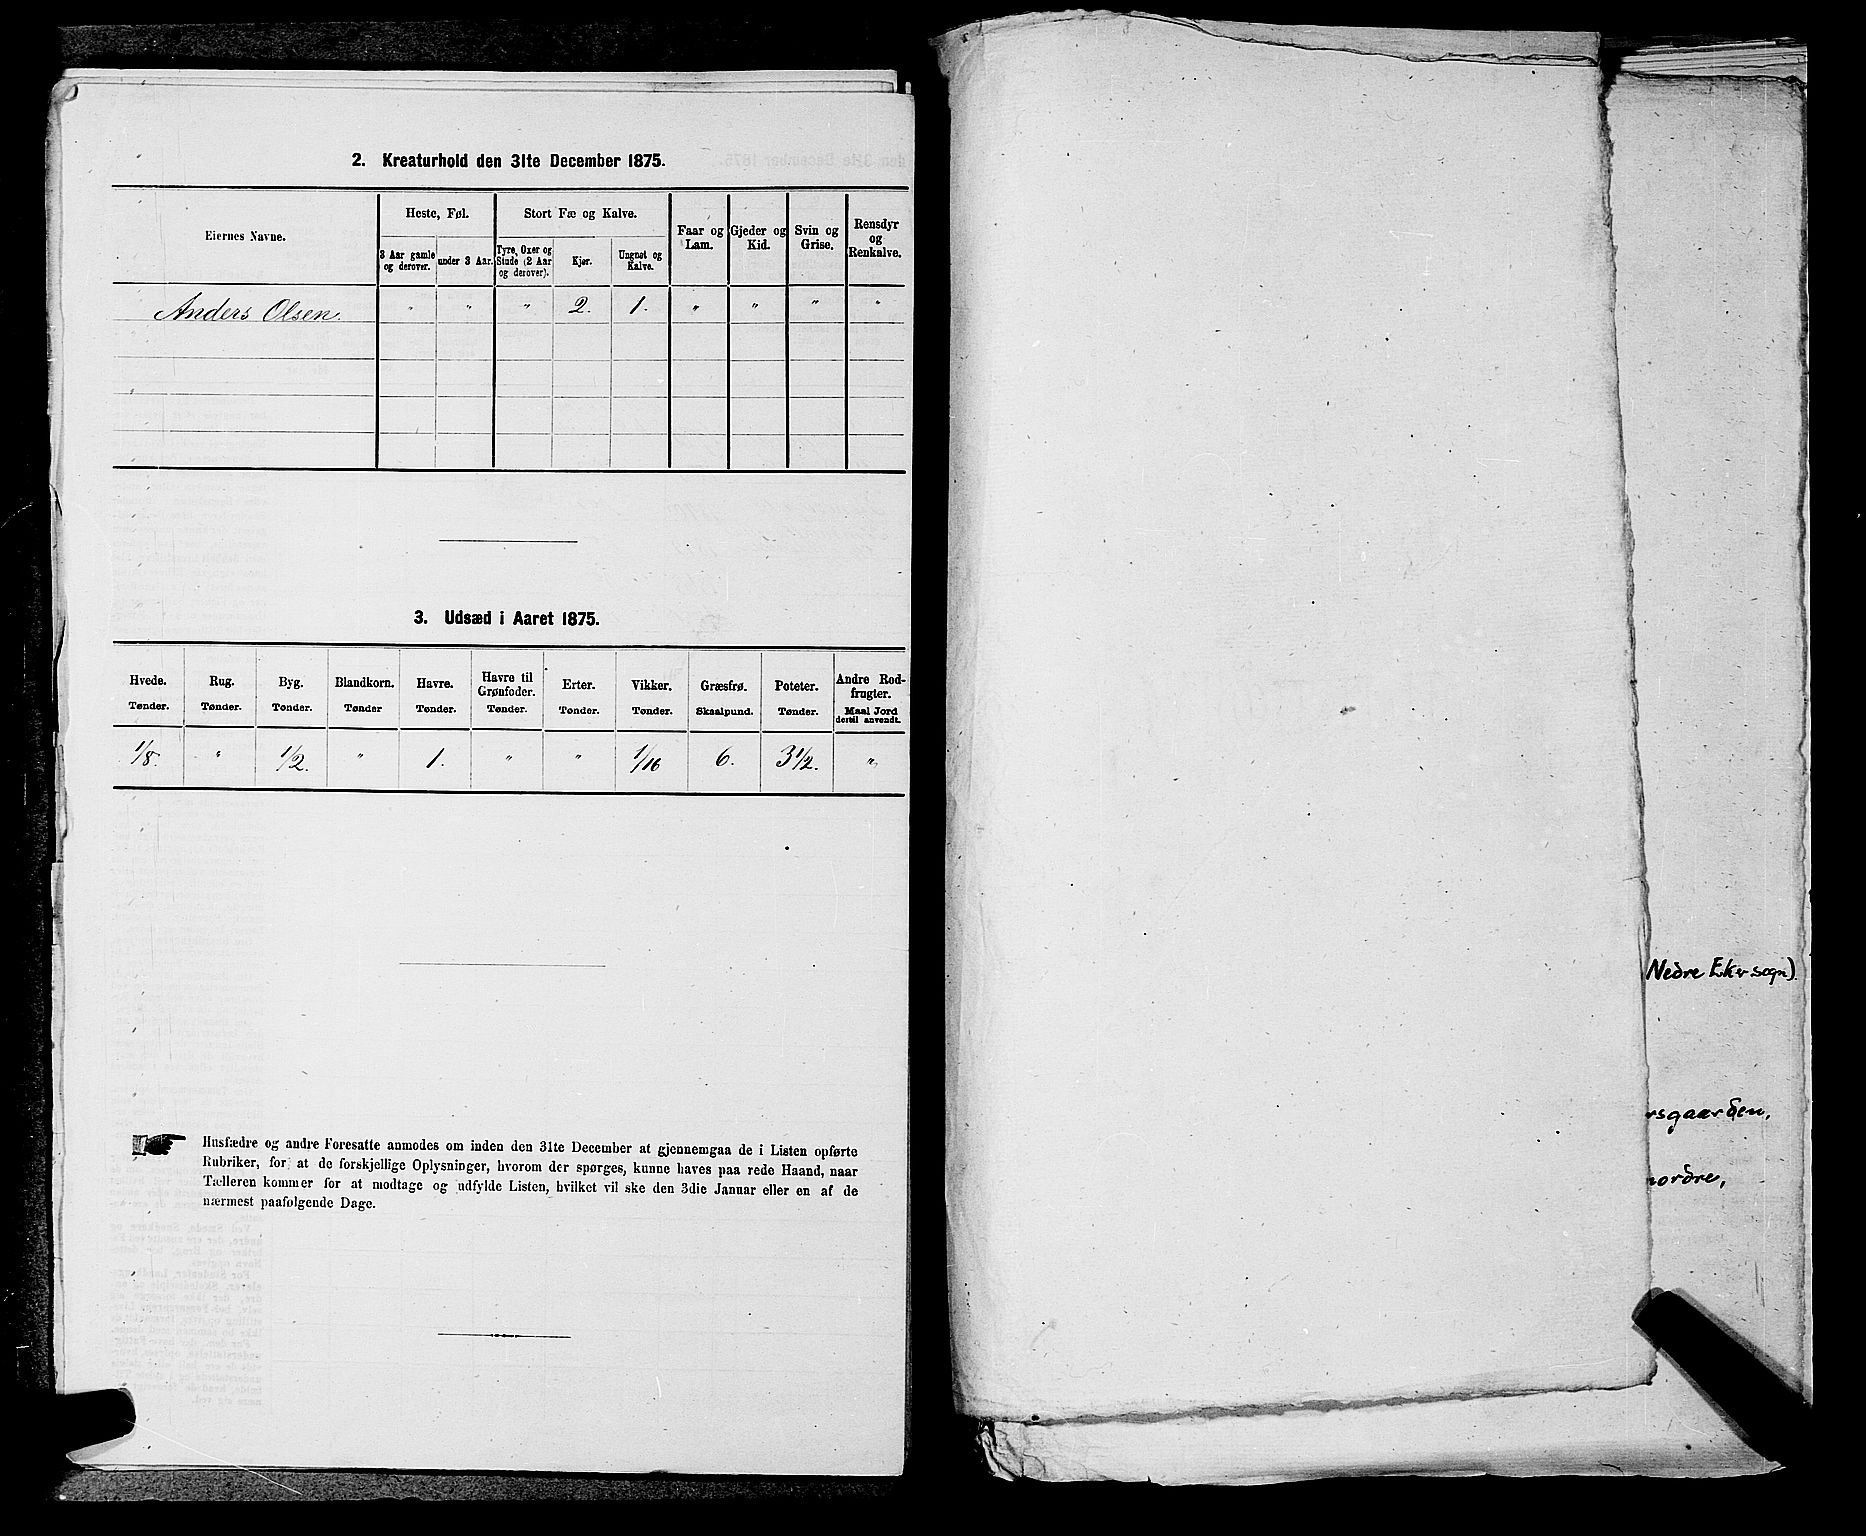 2. Kreaturhold den 31te December 1875.
Eiernes Navne. | Heste, Føl. | Stort Fæ og Kalve. | Faar og Lam. | Gjeder og Kid. | Svin og Grise. | Rensdyr og Renkalve.
3 Aar gamle og derover. | under 3 Aar. | Tyre, Oxer og Stude (2 Aar og derover). | Kjør. | Ungnøt og Kalve.
Anders Olsen. | " | " | " | 2. | 1. | " | " | " | "
3. Udsæd i Aaret 1875.
Hvede. | Rug. | Byg. | Blandkorn. | Havre. | Havre til Grønfoder. | Erter. | Vikker. | Græsfrø. | Poteter. | Andre Rodfrugter.
Tønder. | Tønder. | Tønder. | Tønder | Tønder. | Tønder. | Tønder. | Tønder. | Skaalpund. | Tønder. | Maal Jord dertil anvendt.
1/8. | " | 1/2. | " | 1. | " | " | 1/16 | 6. | 3 1/2. | "
Husfædre og andre Foresatte anmodes om inden den 31te December at gjennemgaa de i Listen opførte
Rubriker, for at de forskjellige Oplysninger, hvorom der spørges, kunne haves paa rede Haand, naar
Tælleren kommer for at modtage og udfylde Listen, hvilket vil ske den 3die Januar eller en af de
nærmest paafølgende Dage.
Nedre Eker sogn).
rsgaarden,
nordre,